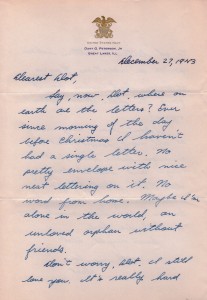 UNITED STATES NAVY
GREAT LAKES, ILL.
December 27, 1943
Dearest Dot,
Say, now, Dot, where on
earth are the letters? Ever
since morning of the day
before Christmas I haven't
had a single letter. No
pretty envelope with nice
neat lettering on it. No
word from home. Maybe I'm
alone in the world, an
unloved orphan without
friends.
Don't worry, Dot, I still
love you. It's really hard